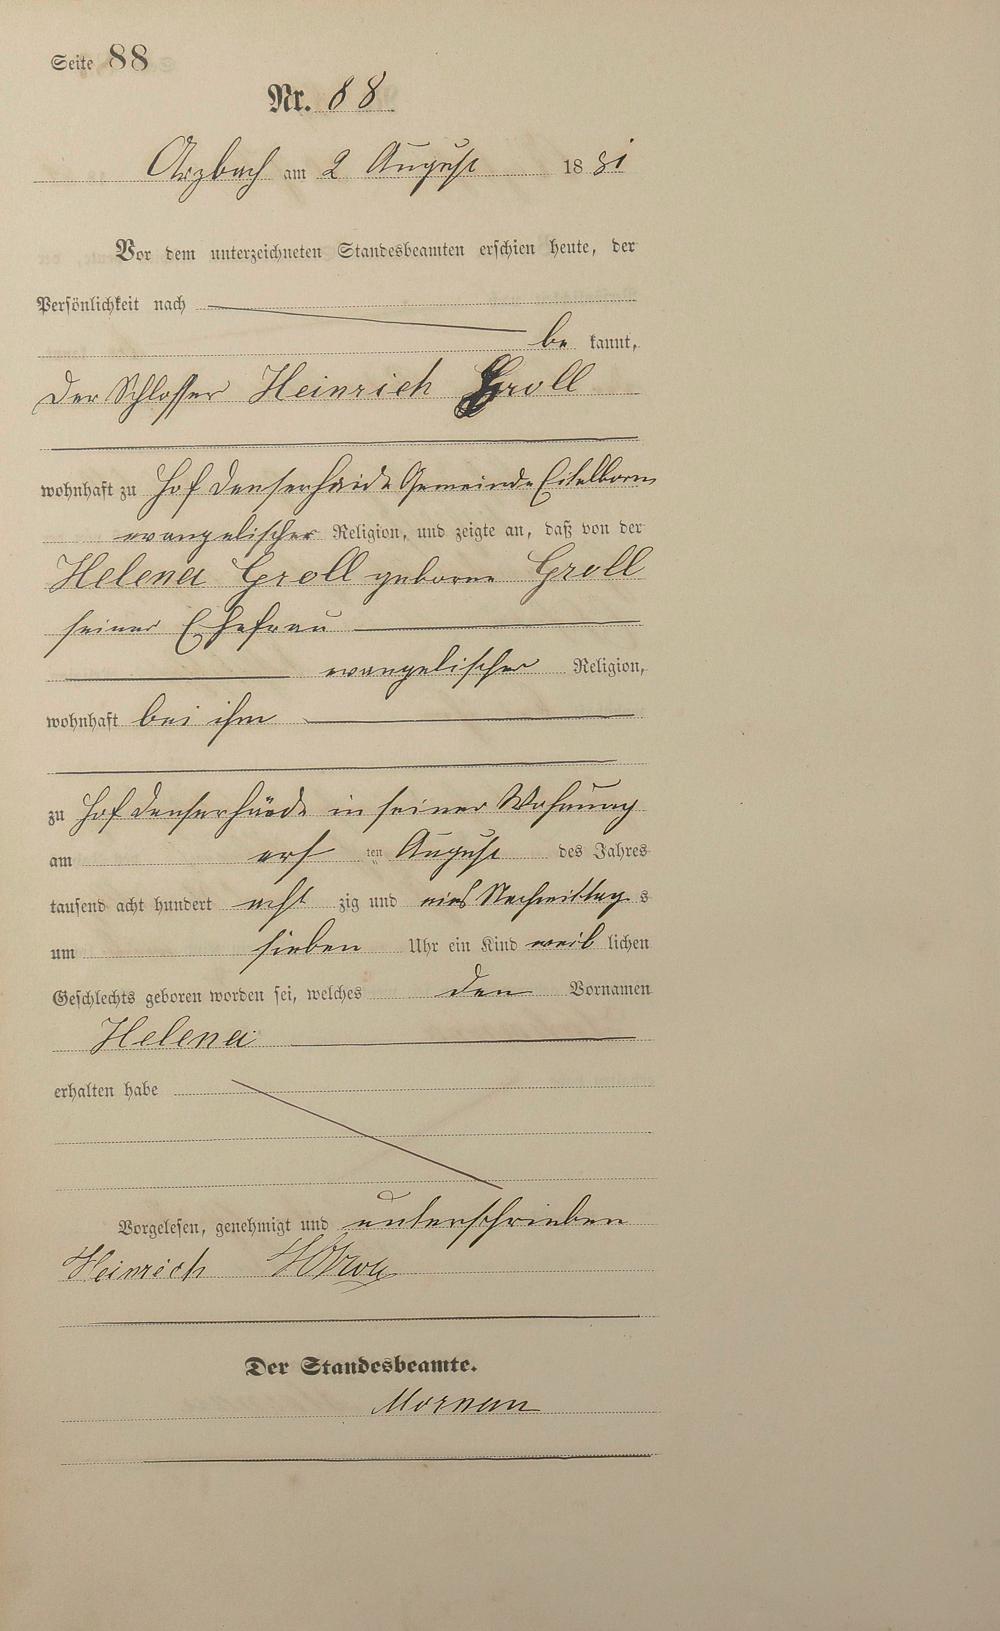 Seite 88
Nr. 88
Arzbach am 2 August 1881
Vor dem unterzeichneten Standesbeamten erschien heute, der
Persönlichkeit nach
be kannt,
der Schlosser Heinrich Groll
wohnhaft zu Hof Denserhaide Gemeinde Eitelborn
evangelischer Religion, und zeigte an, daß von der
Helena Groll geborne Groll
seiner Ehefrau
evangelischer Religion,
wohnhaft bei ihm
zu Hof Denserhaide in seiner Wohnung
am ersten August des Jahres
tausend acht hundert acht zig und eins Nachmittag s
um sieben Uhr ein Kind weib lichen
Geschlechts geboren worden sei, welches den Vornamen
Helena
erhalten habe
Vorgelesen, genehmigt und unterschrieben
Heinrich
Der Standesbeamte.